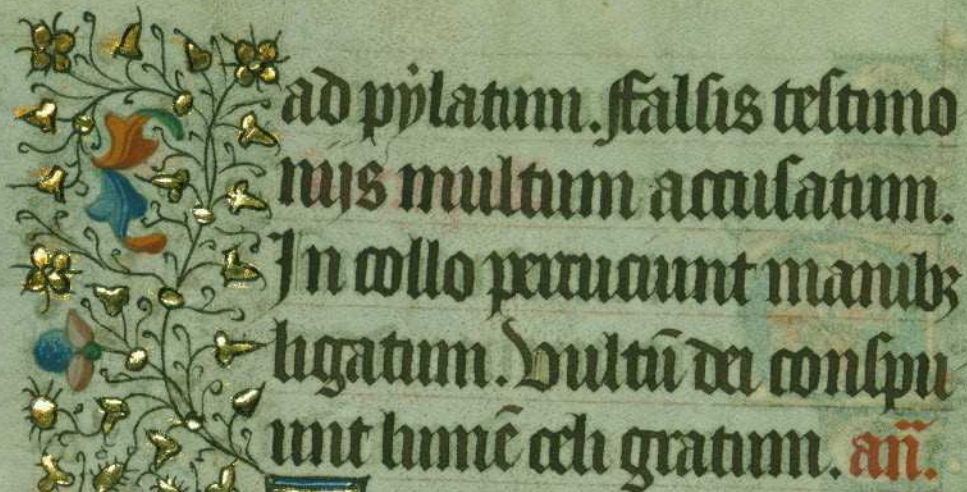 ad pÿlatum. ffalsis testimo
nijs multum accusatum.
In collo percuciunt manibꝫ
ligatum. Vultū dei conspu
unt lumē celi gratum. an̄.